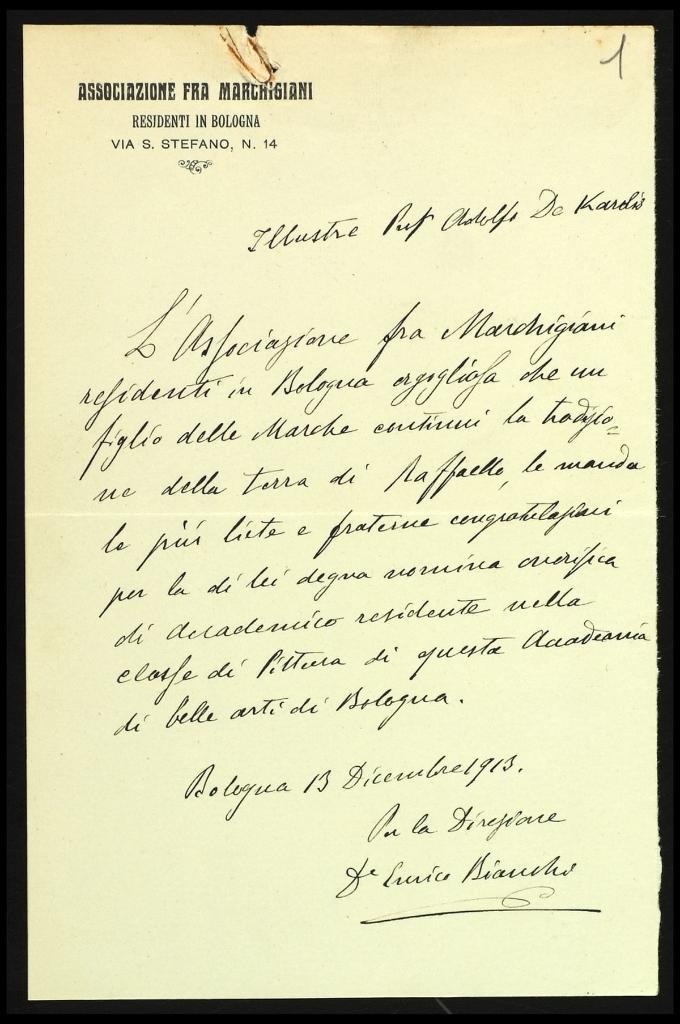 1
ASSOCIAZIONE FRA MARCHIGIANI
RESIDENTI IN BOLOGNA
VIA S. STEFANO, N. 14
Illustre Prof Adolfo De Karolis
L'Associazione fra Marchigiani
residenti in Bologna orgogliosa che un
figlio delle Marche continui la tradizio=
ne della terra di Raffaello, le manda
le più liete e fraterne congratulazioni
per la di lei degna nomina onorifica
di Accademico residente nella
classe di Pittura di questa Accademia
di belle arti di Bologna.
Bologna 13 Dicembre 1913.
Per la Direzione
Dr Enrico Bianchi